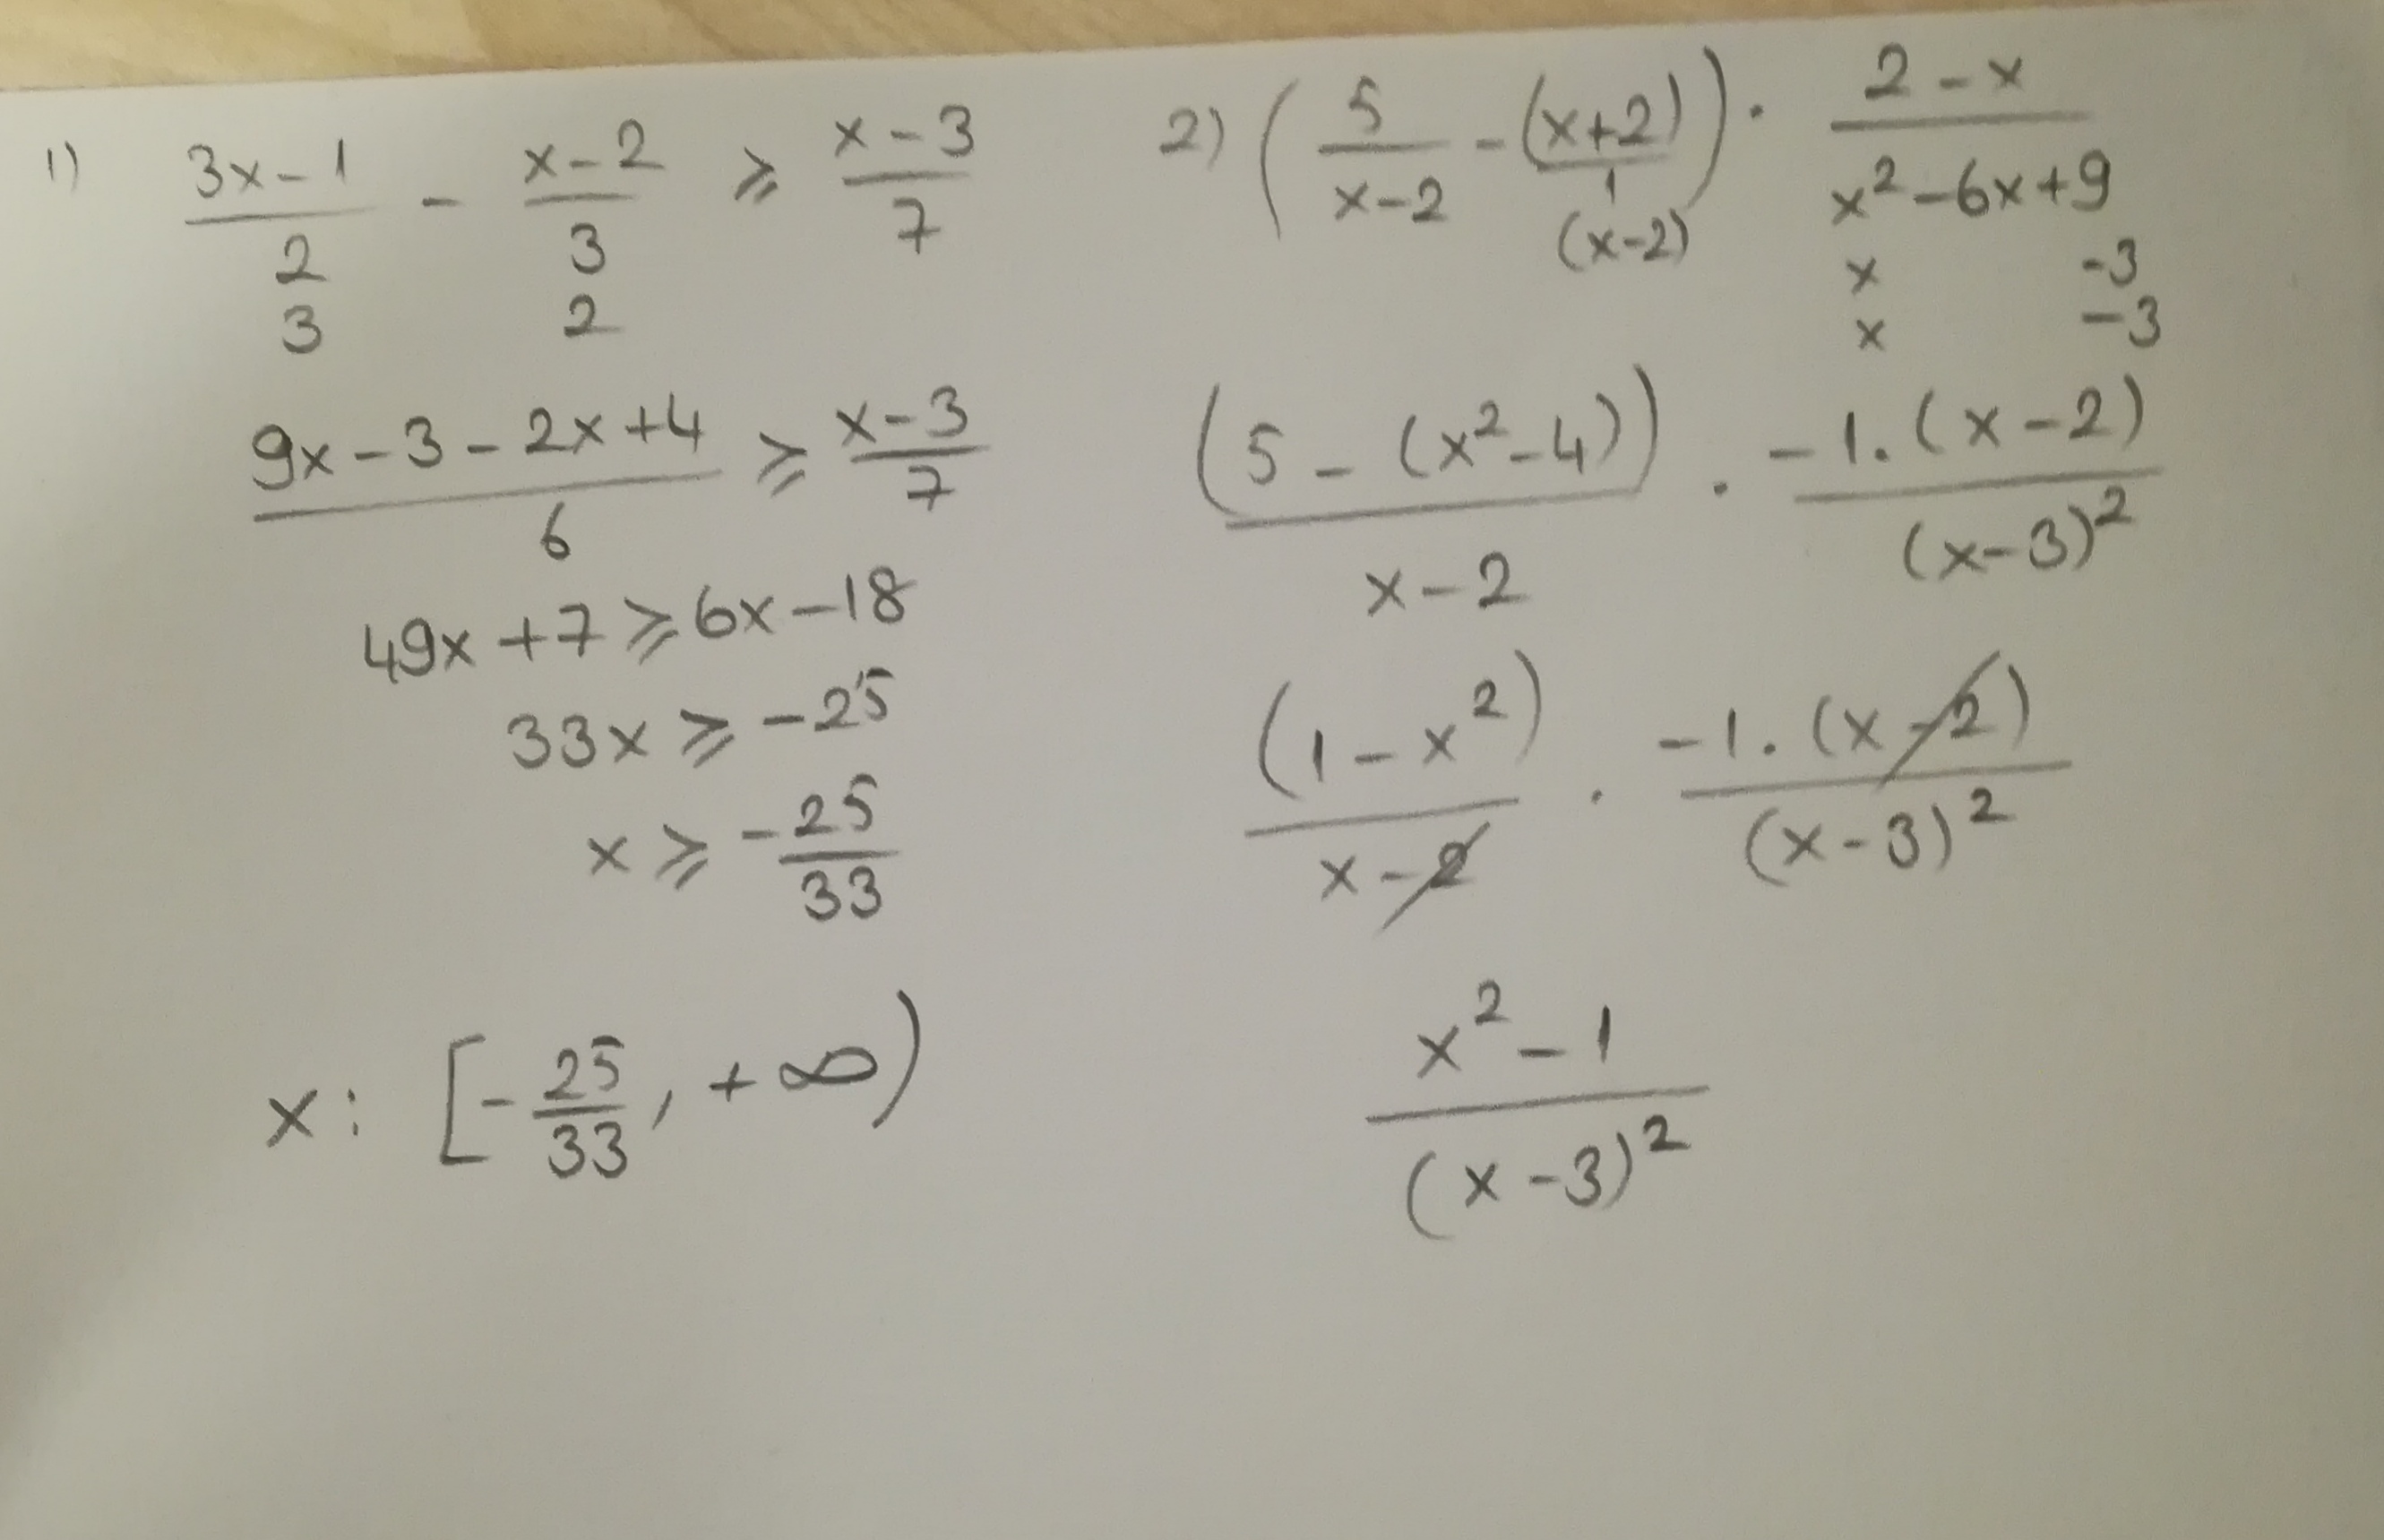 1) (3x-1)/2 - (x-2)/3 ⩾ (x-3)/7
3 2
(9x-3-2x+4)/6 ⩾ (x-3)/7
49x+7⩾6x-18
33x⩾-25
x⩾-25/33
x: [-25/33, +∞)
2) (5/(x-2) - (x+2)/1) · (2-x)/(x²-6x+9)
(x-2)
x -3
x -3
(5-(x²-4))/(x-2) · (-1.(x-2))/(x-3)²
(1-x²)/(x-2) · (-1.(x-2))/(x-3)²
(x²-1)/(x-3)²